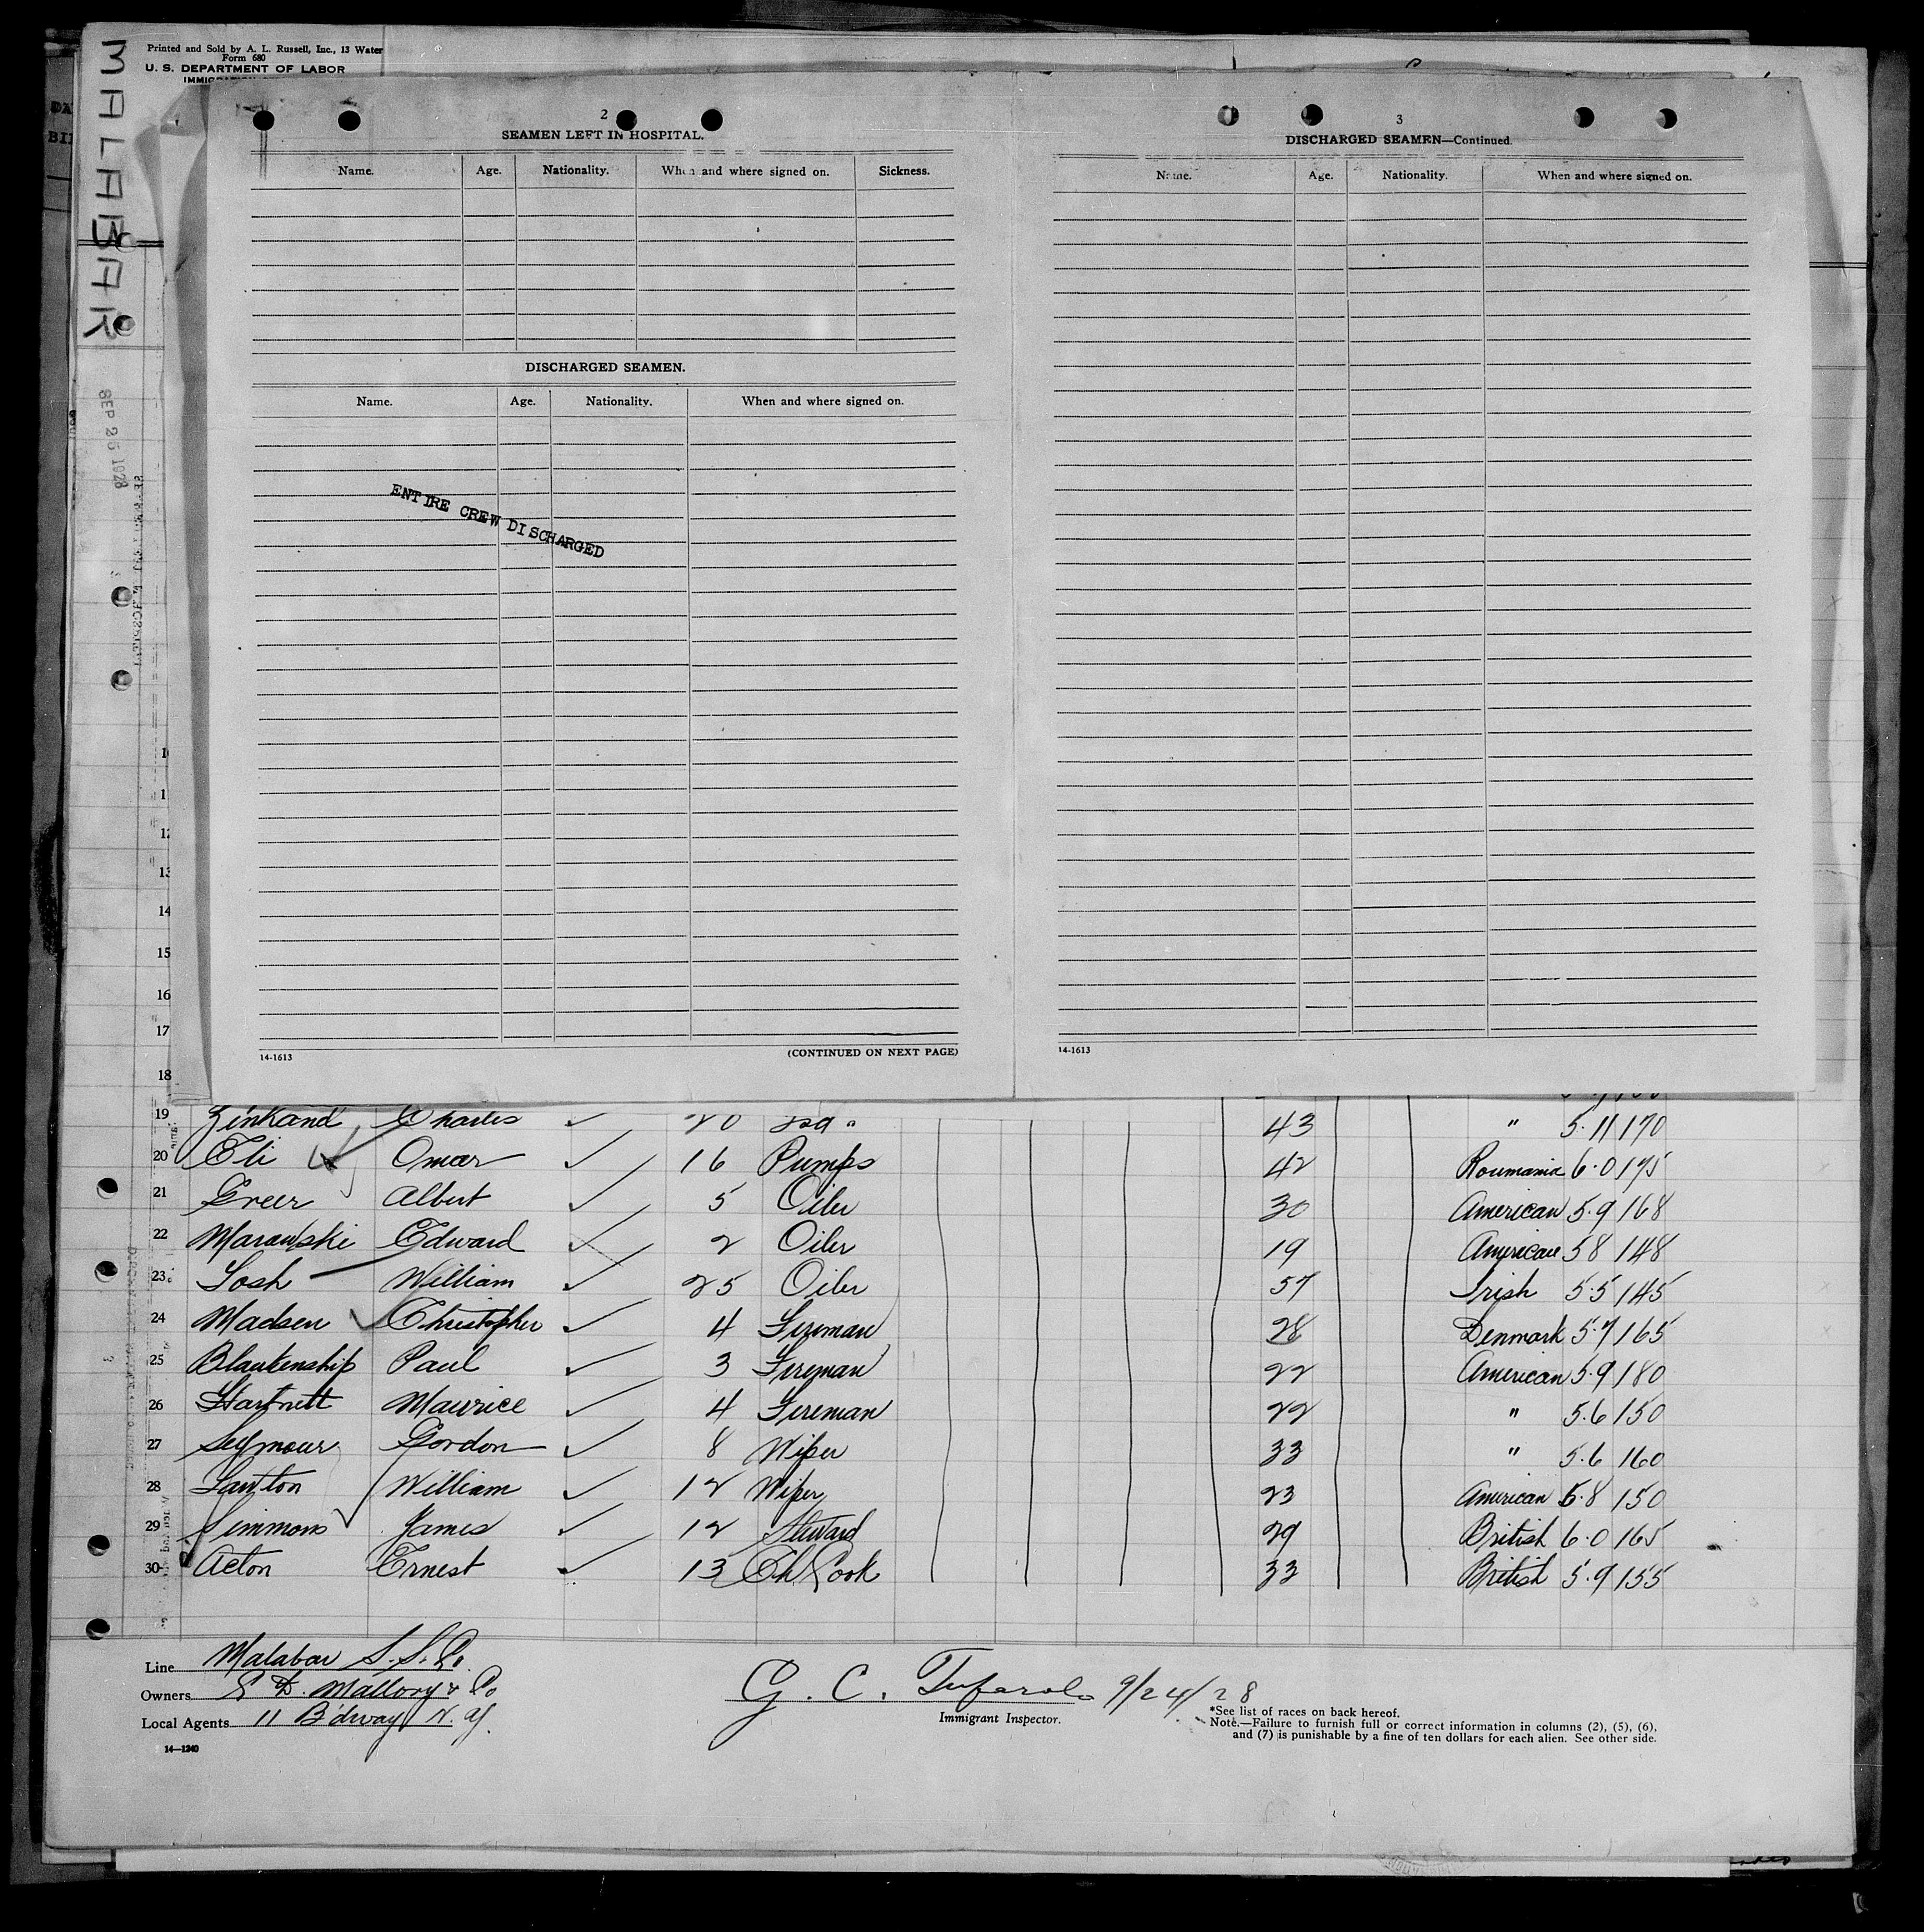 MALABAR
SEP 25 1928
Printed and Sold by A. L. Russell, Inc., 13 Water
Form 680
U. S. DEPARTMENT OF LABOR
2
SEAMEN LEFT IN HOSPITAL.
Name. Age. Nationality. When and where signed on. Sickness.
DISCHARGED SEAMEN.
Name. Age. Nationality. When and where signed on.
ENTIRE CREW DISCHARGED
14-1613 (CONTINUED ON NEXT PAGE)
3
DISCHARGED SEAMEN—Continued.
Name. Age. Nationality. When and where signed on.
14-1613
14
15
16
17
18
19 Zinkand Charles 20 43 " 5.11 170
20 Eli Omar 16 Pumps 42 Roumania 6.0 175
21 Greer Albert 5 Oiler 30 American 5.9 168
22 Marowski Edward 2 Oiler 19 American 58 148
23 Losh William 25 Oiler 57 Irish 5.5 145
24 Madsen Christopher 4 Fireman 28 Denmark 5.7 165
25 Blankenship Paul 3 Fireman 22 American 5.9 180
26 Hartnett Maurice 4 Fireman 22 " 5.6 150
27 Seymour Gordon 8 Wiper 33 " 5.6 160
28 Lawton William 12 Wiper 23 American 5.8 150
29 Simmons James 12 Steward 29 British 6.0 165
30 Acton Ernest 13 Ch Cook 33 British 5.9 155
Line Malabar S.S. Co.
Owners D. Mallory & Co
Local Agents 11 B'dway N.Y.
14—1240
G. C. 9/24/28
Immigrant Inspector.
*See list of races on back hereof.
Note.—Failure to furnish full or correct information in columns (2), (5), (6),
and (7) is punishable by a fine of ten dollars for each alien. See other side.